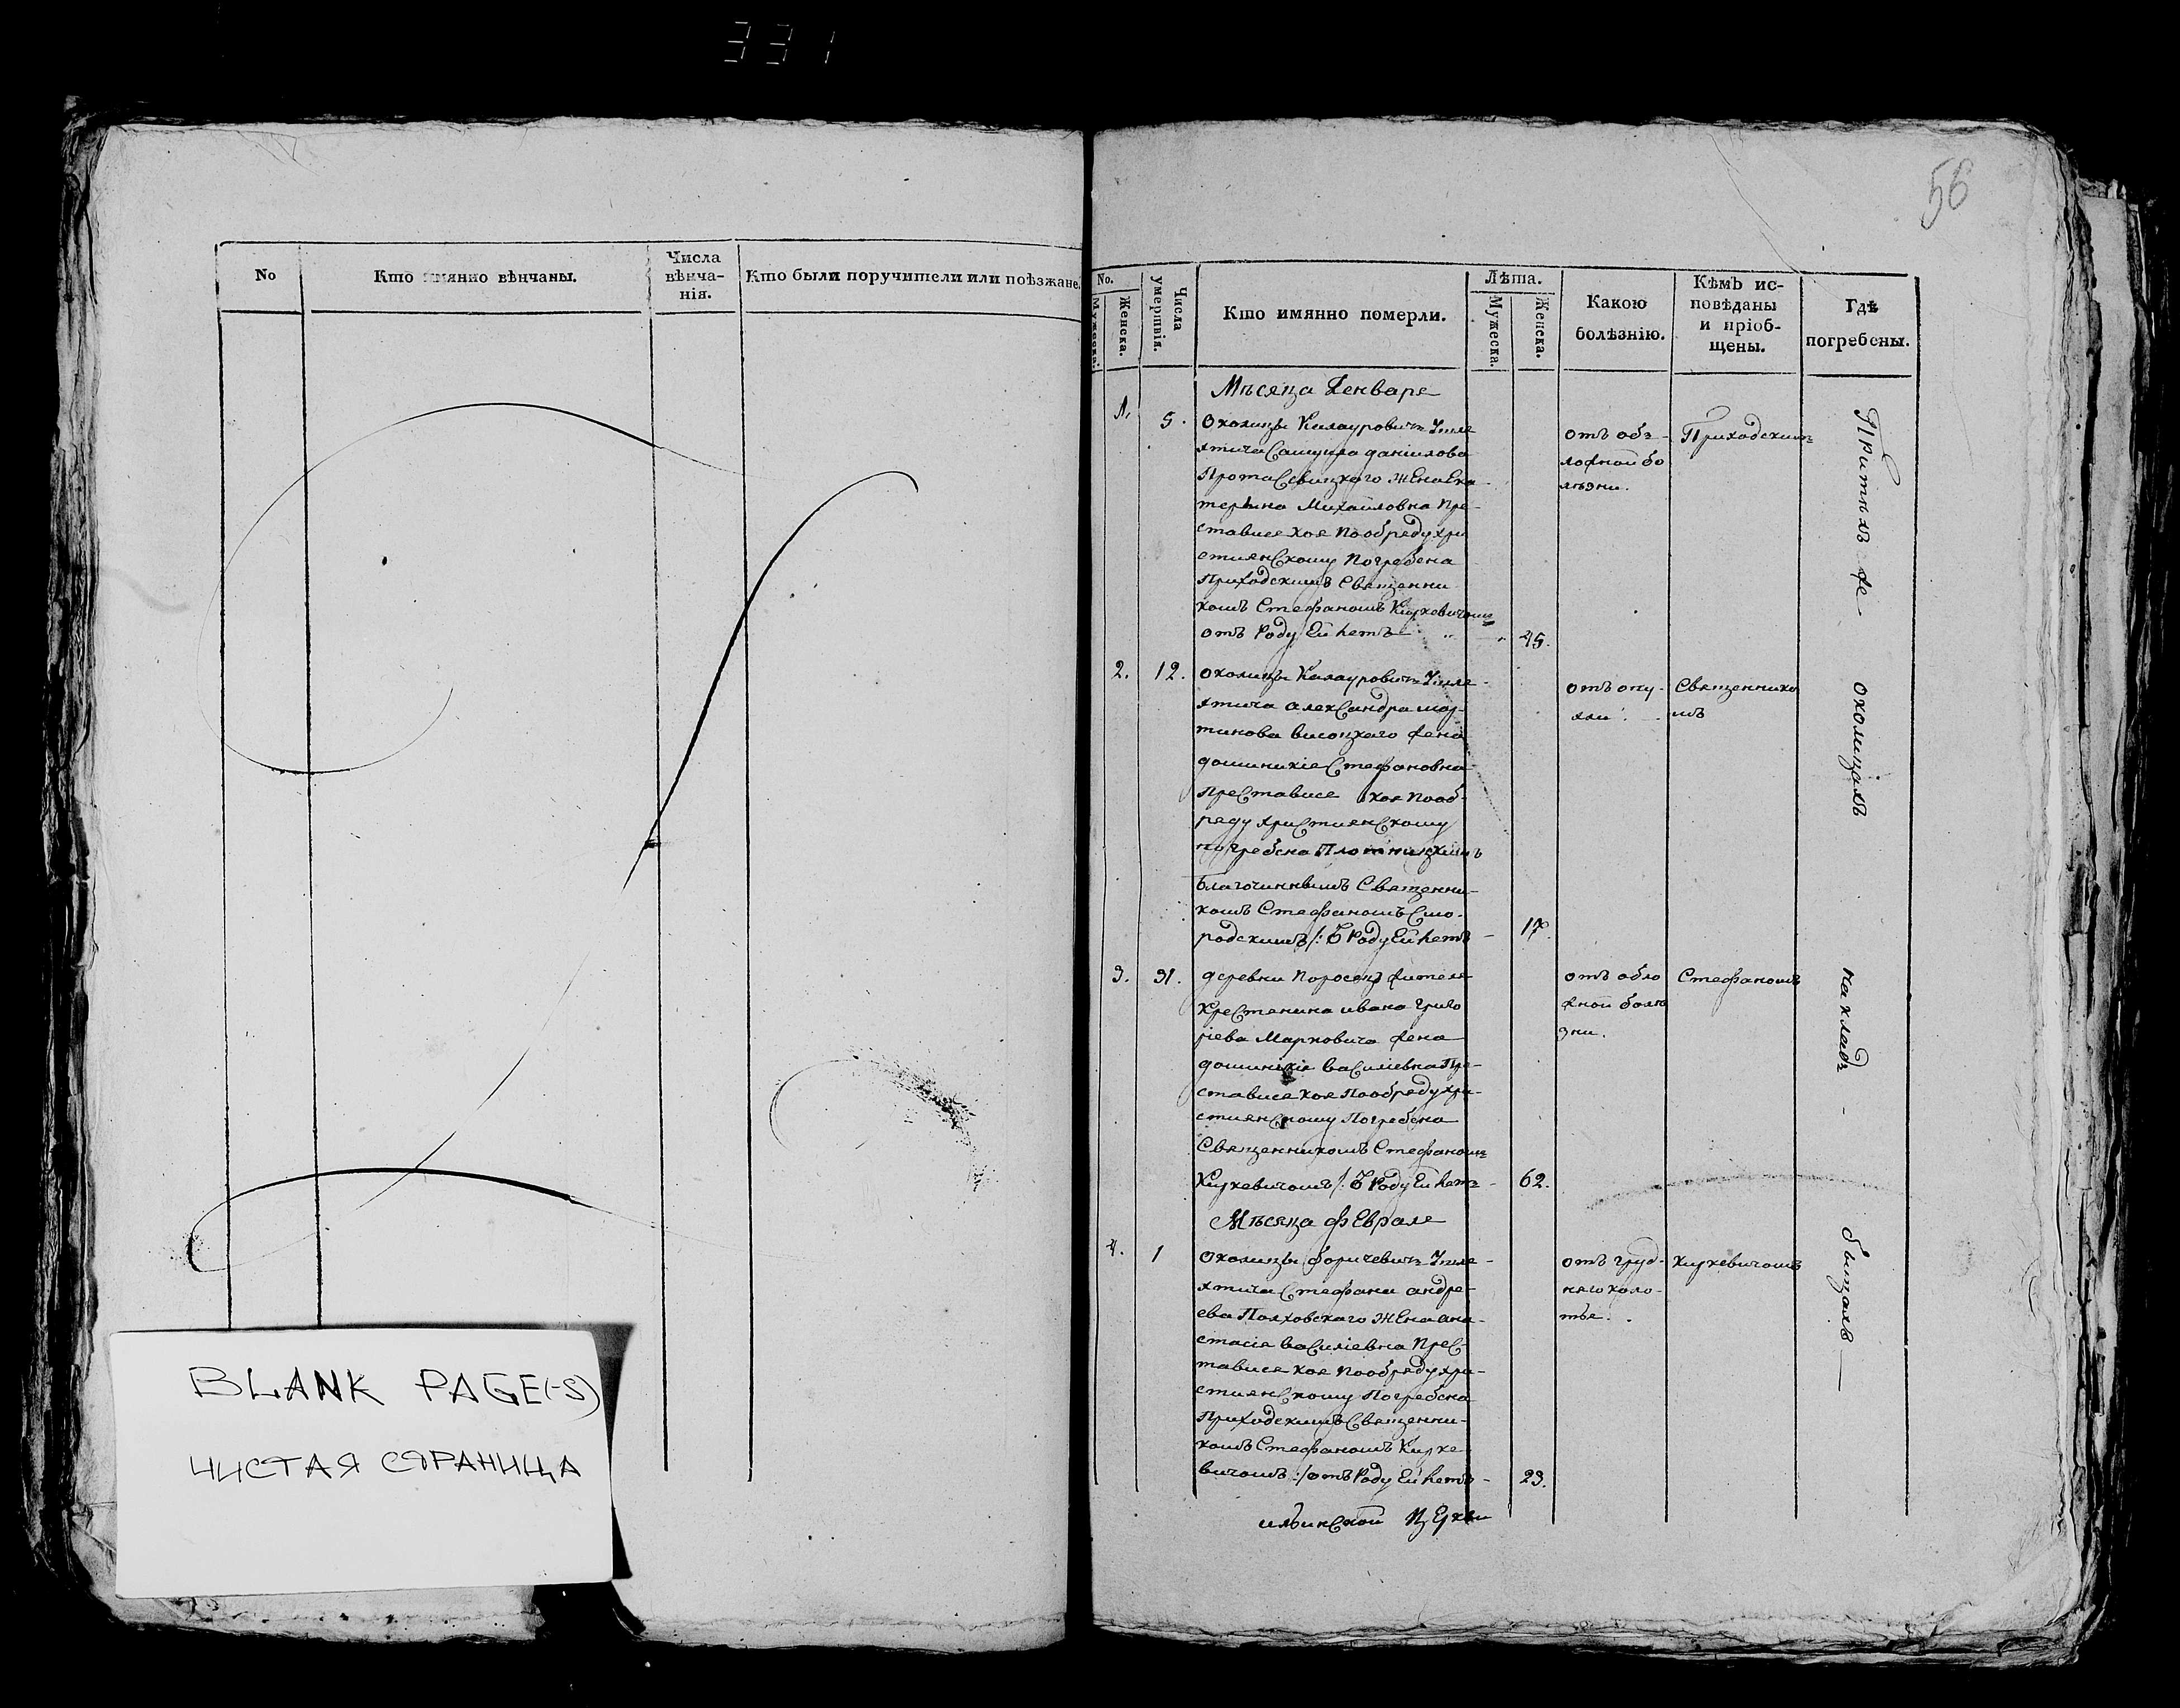 331
56
No
Кто имянно вѣнчаны.
Числа
вѣнча-
нія.
Кто были поручители или поѣзжане.
BLANK PAGE(-S)
ЧИСТАЯ СТРАНИЦА
No.
Мужеска.
Женска.
Числа
умертвія.
Кто имянно померли.
Лѣта.
Мужеска.
Женска.
Какою
болѣзнію.
Кѣмъ ис-
повѣданы
и пріоб-
щены.
Гдѣ
погребены.
Мѣсяца Генваря
1. 5.
Околицы Калауровичъ Шля
хтича Самуила Даніилова
Протасевицкаго жена Ека-
терына Михайловна Пре-
ставися коя по обряду хри
стиянскому Погребена
Приходскимъ Священни
комъ Стефаномъ Киркевичомъ
отъ Роду Ей летъ 45.
отъ обл-
ложной бо
лѣзни.
Приходскимъ
2. 12.
околицы Калауровичъ Шля-
хтича александра мар-
тинова висоцкаго жена
доминикія Стефановна
Преставися коя по об-
ряду християнскому
погребена Плотницкимъ
Благочиннымъ Священни-
комъ Стефаномъ Смо-
родскимъ /: Ѿ Роду Ей летъ - 17.
отъ опу-
хли.
Священнико
мъ
3. 31.
деревни Поросецъ жителя
Крестянина ивана Григо
ріева Марковича жена
доминікія василіевна Пре-
ставися коя По обряду хри-
стиянскому Погребена
Священникомъ Стефаномъ
Киркевичомъ /: Ѿ Роду Ей летъ - 62.
отъ обло
жной болѣ
зни.
Стефаномъ
Мѣсяца Февраля
4. 1
околицы боричевичъ Шля-
хтича Стефана андре-
ева Полховскаго жена ана-
стасія василіевна Прес
тавися коя по обряду хри-
стиянскому Погребена
Приходскимъ Священни-
комъ Стефаномъ Кирке
вичомъ :/ отъ Роду Ей летъ - 23.
отъ груд-
наго коло-
тья.
киркевичомъ
При тѣхъ же
околицахъ
на кладъ-
бищахъ
ильинской Церкви